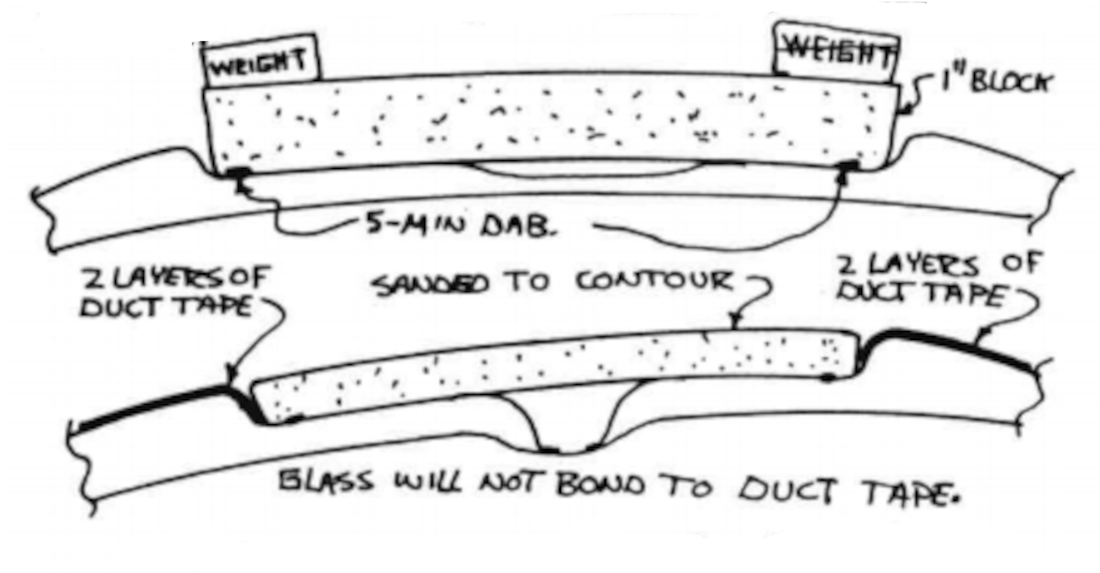 WEIGHT
WEIGHT
1" BLOCK
5-MIN DAB.
2 LAYERS OF
DUCT TAPE
SANDED TO CONTOUR
2 LAYERS OF
DUCT TAPE
GLASS WILL NOT BOND TO DUCT TAPE.